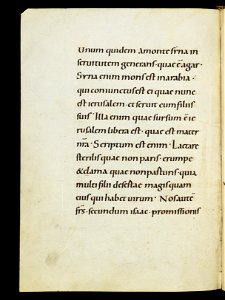 Unum quidem Amonte sina in
seruitutem generans · quae ē agar ·
Syna enim mons est in arabia ·
qui coniunctus est ei quae nunc
est ierusalem · et seruit cum filiis
suis · Illa enim quae sursum ē ie
rusalem libera est · quae est mater
nr̄a · Scriptum est enim · Laetare
sterilis quae non paris · erumpe
& clama quae non parturis · quia
multi filii desertae magis quam
eius quae habet uirum · Nos autē
frs̄ · secundum isaac · promissionis